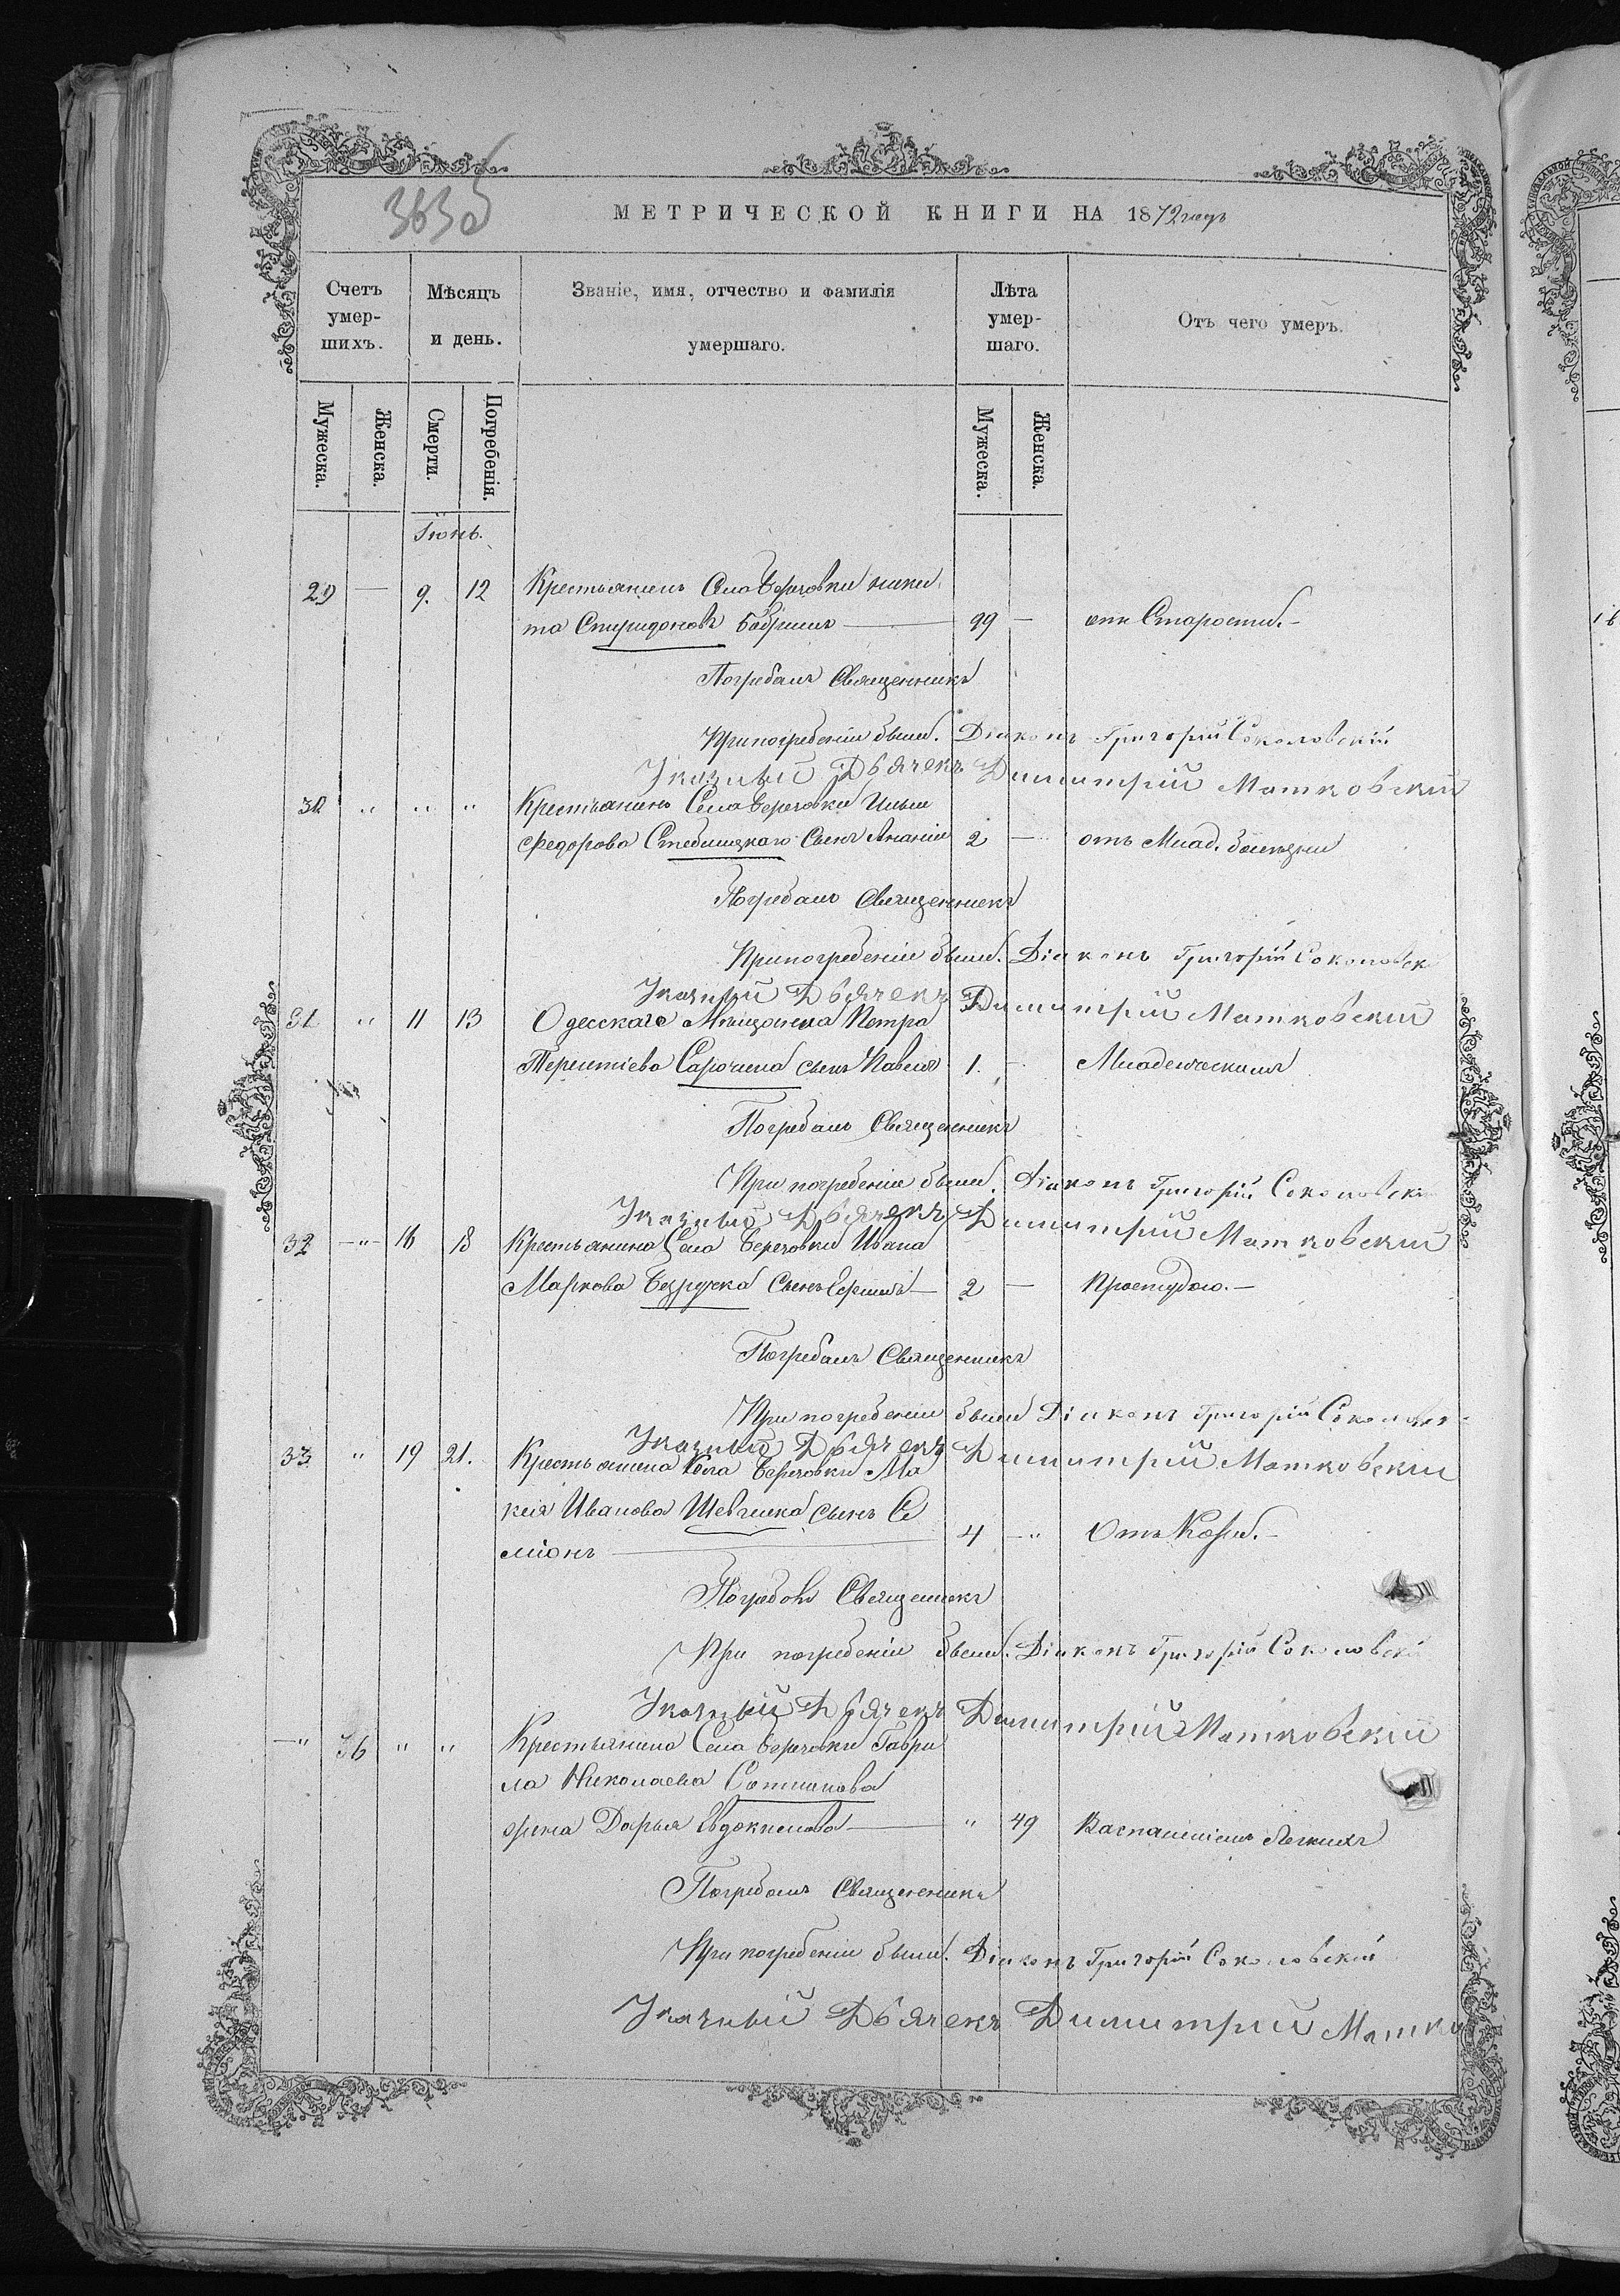 363 об
МЕТРИЧЕСКОЙ КНИГИ НА 1872 годъ
Счетъ умер-шихъ.
Мѣсяцъ и день.
Званіе, имя, отчество и фамилія умершаго.
Лѣта умер-шаго.
Отъ чего умеръ.
Мужеска. Женска. Смерти. Погребенія. Мужеска. Женска.
Іюнь.
29 — 9. 12 Крестьянинъ Села Березовки Ники
та Спиридоновъ — 99 — отъ Старости. —
Погребалъ Священникъ
При погребеніи были. Діаконъ Григорій Соколовскій
Указный Дьячекъ Димитрій Матковскій
30 " " " Крестьянина Села Березовки Ильи
Федорова Стебницкаго Сынъ Ананія 2 — отъ Млад. болѣзни
Погребалъ Священникъ
При погребеніи были. Діаконъ Григорій Соколовск
Указный Дьячекъ Димитрій Матковскій
31 " 11 13 Одесскаго Мѣщанина Петра
Терентіева сынъ Павелъ 1. — Младенческимъ
Погребалъ Священникъ
При погребеніи были. Діаконъ Григорій Соколовски
Указный Дьячекъ Димитрій Матковскій
32 — " — 16 18 Крестьянина Села Березовки Ивана
Маркова Сынъ 2 — Простудою. —
Погребалъ Священникъ
При погребеніи были Діаконъ Григорій Соколовск
Указный Дьячекъ Димитрій Матковскій
33 " 19 21. Крестьянина Села Березовки Ма
кія Иванова Шевчика сынъ Си
міонъ — 4 — " Отъ Кори. —
Погребалъ Священникъ
При погребеніи были. Діаконъ Григорій Соколовскі
Указный Дьячекъ Димитрій Матковскій
— " 36 " " Крестьянина Села Березовки Гаври
ла Николаева Сотникова
жена Дарья Евдокимова — " 49 Воспаленіемъ Легкихъ
Погребалъ Священникъ
При погребеніи были. Діаконъ Григорій Соколовскій
Указный Дьячекъ Димитрій Матко